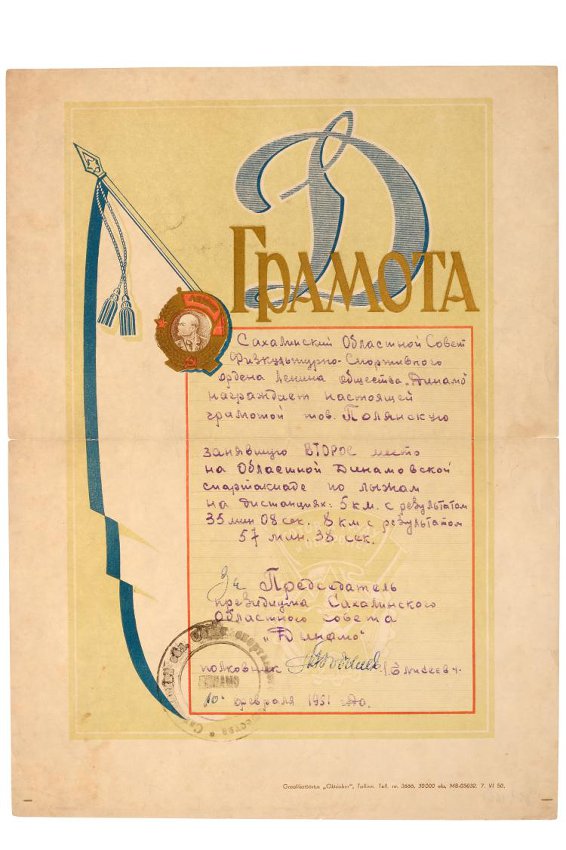 Д
ГРАМОТА
Сахалинский Областной Совет
Физкультурно-Спортивного
ордена Ленина общества „Динамо"
награждает настоящей
грамотой тов. Полянскую
занявшую ВТОРОЕ место
на Областной Динамовской
спартакиаде по лыжам
на дистанциях: 5 км. с результатом
35 мин 08 сек. 8 км с результатом
57 мин. 38 сек.
За Председатель
президиума Сахалинского
Областного совета
„Динамо"
полковник /Елисеев/
ДИНАМО
10 февраля 1951 года.
Graafikatööstus „Oktoober", Tallinn. Tell. nr. 3666, 39000 eks. MB-05032. 7. VI 50.